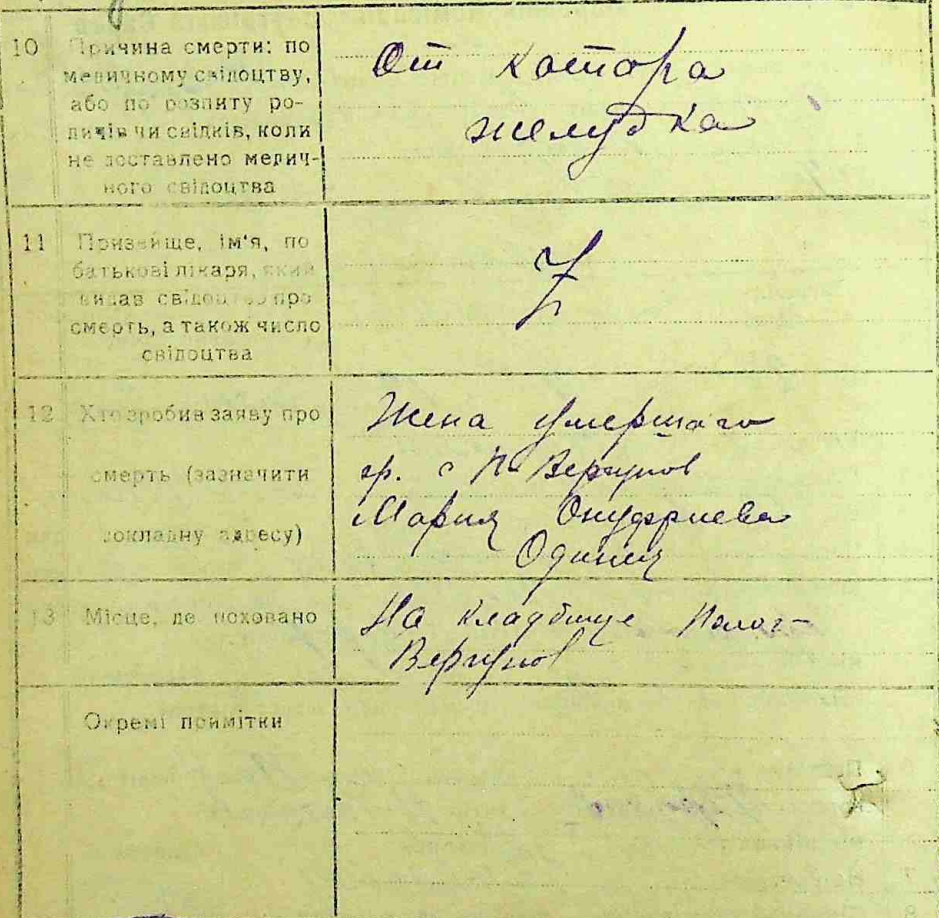 10 Причина смерти: по
медичному свідоцтву,
або по розпиту ро-
дичів чи свідків, коли
не доставлено медич-
ного свідоцтва
От катара
желудка
11 Призвище, ім'я, по
батькові лікаря, який
видав свідоцтво про
смерть, а також число
свідоцтва
12 Хто зробив заяву про
смерть (зазначити
докладну адресу)
Жена умершаго
гр. с П-Вергунов
Мария Онуфриева
Одинец
13 Місце, де поховано
На кладбище Полог-
Вергунов
Окремі примітки